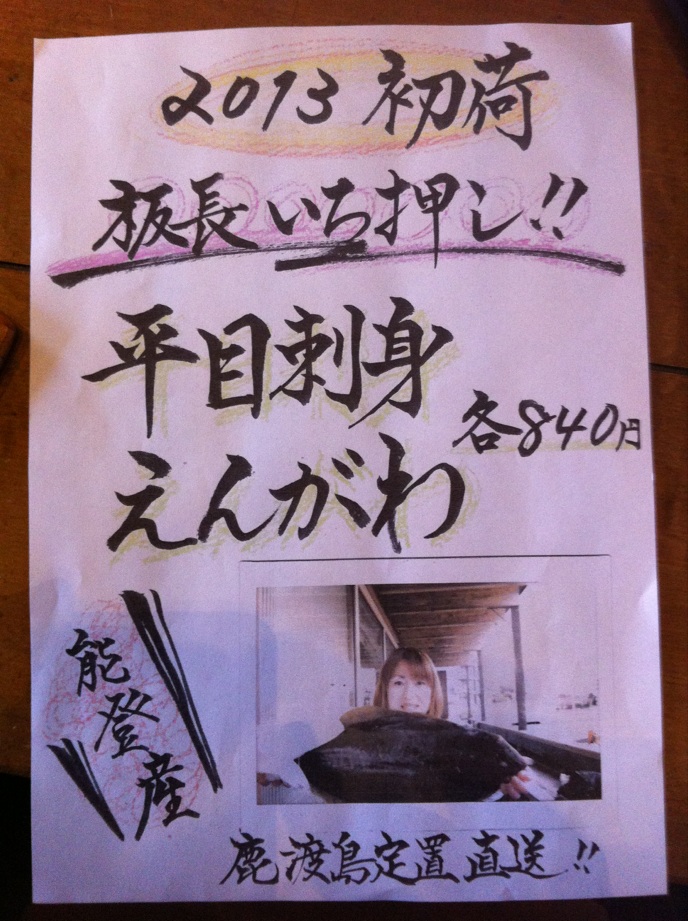 2013 初荷
板長いち押し!!
平目刺身
えんがわ
各840円
能登産
鹿渡島定置直送!!